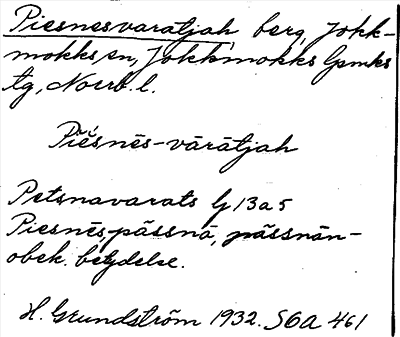 Piesnesvaratjah berg, Jokk-
mokks sn, Jokkmokks lpmks
tg, Norrb. l.
Piẻsnēs-vārātjah
Petsnavarats lj 13a5
Piesnēs, pässnā, pässnān-
obek. betydelse.
H. Grundström 1932. SOA 461